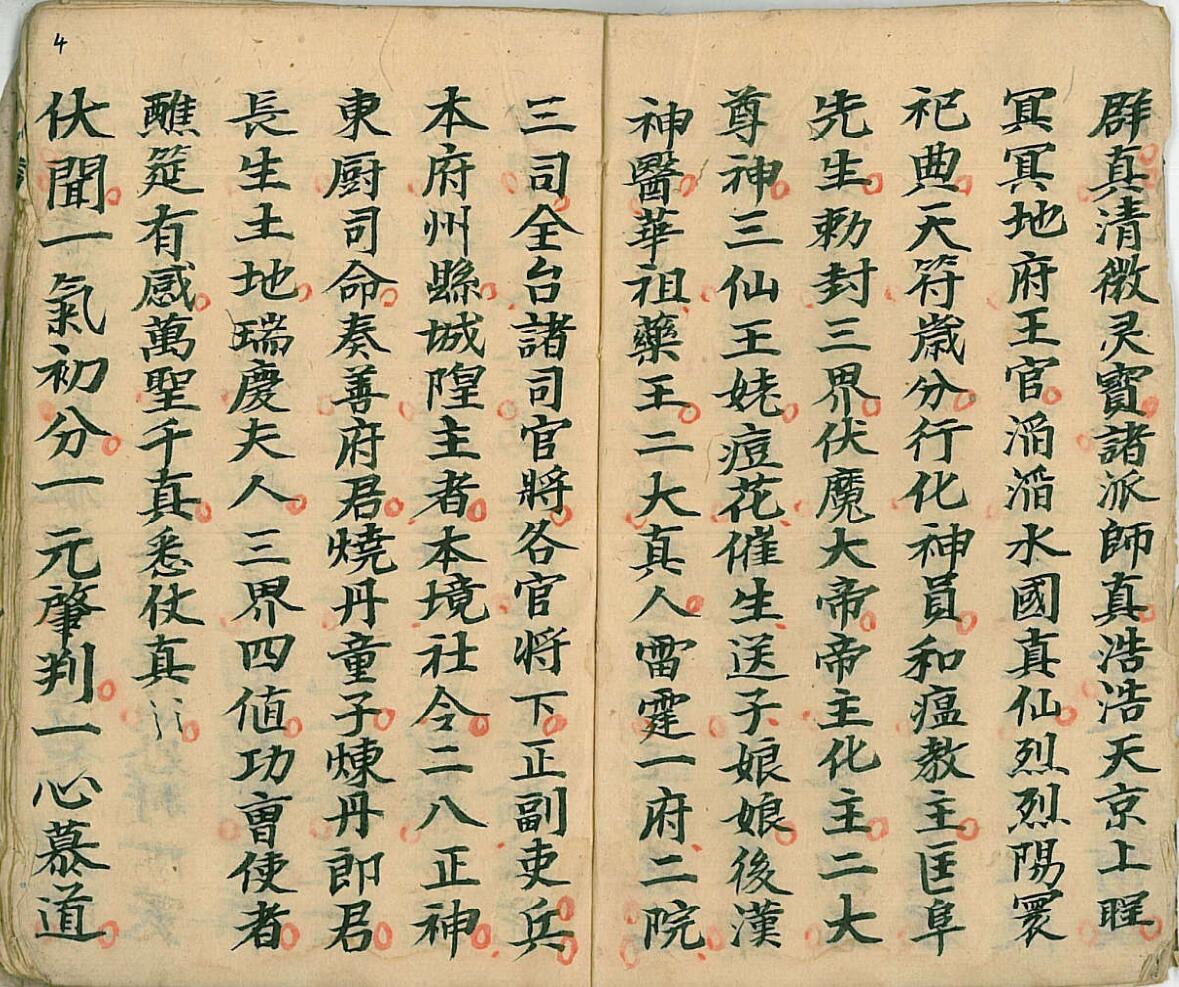 群真清微灵寳諸派師真浩浩天京上聖
冥冥地府王官滔滔水國真仙烈烈陽寰
祀典天符歲分行化神員和瘟教主匡阜
先生勅封三界伏魔大帝帝主化主二大
尊神三仙王姥痘花催生送子娘娘後漢
神醫華祖藥王二大真人雷霆一府二院
三司全台諸司官將各官将下正副吏兵
本府州縣城隍主者本境社令二八正神
東厨司命奏善府君燒丹童子煉丹郎君
長生土地瑞慶夫人三界四值功曺使者
醮筵有感萬聖千真悉仗真
伏聞一氣初分一元肇判一心慕道
4